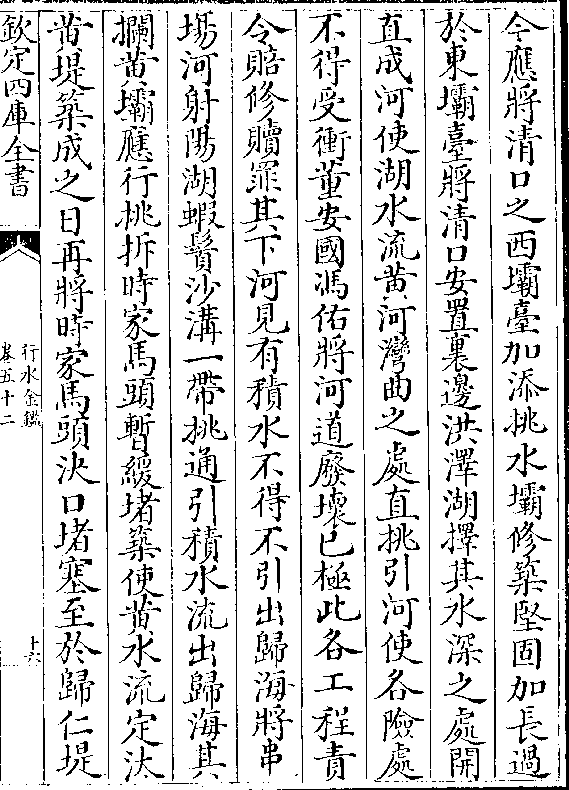 今應將清口之西壩臺加添挑水壩修築堅固加長過
於東壩臺將清口安置裏邊洪澤湖擇其水深之處開
直成河使湖水流黄河灣曲之處直挑引河使各險處
不得受衝董安國馮佑將河道廢壞已極此各工程責
令賠修贖罪其下河見有積水不得不引出歸海將串
塲河射陽湖蝦鬚沙溝一帶挑通引積水流出歸海其
攔黄壩應行挑拆時家馬頭暫緩堵築使黄水流定汰
黄堤築成之日再將時家馬頭決口堵塞至於歸仁堤
欽定四庫全書
行水金鑑
卷五十二
十六